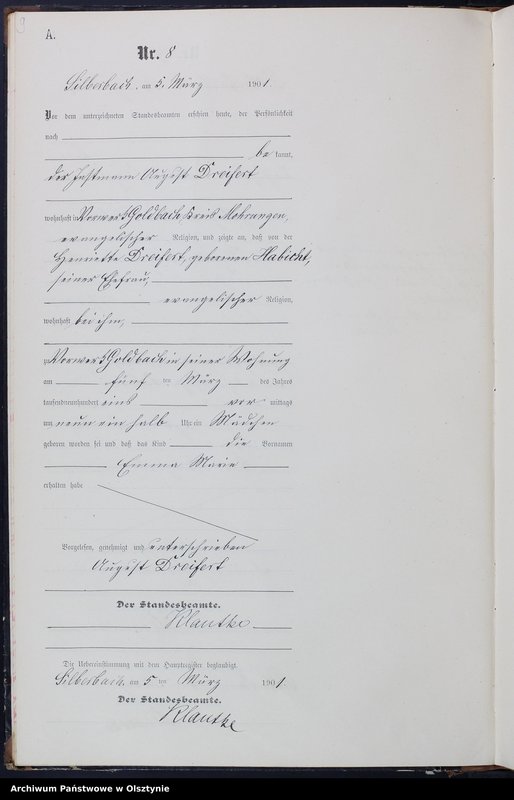 9
A.
Nr. 8
Silberbach, am 5. März 1901
Vor dem unterzeichneten Standesbeamten erschien heute, der Persönlichkeit
nach
be kannt,
der Instmann August Dreifert
wohnhaft in Vorwerk Goldbach Kreis Mohrungen,
evangelischer Religion, und zeigte an, daß von der
Henriette Dreifert, geborenen Habicht,
seiner Ehefrau,
evangelischer Religion,
wohnhaft bei ihm,
zu Vorwerk Goldbach in seiner Wohnung
am fünf ten März des Jahres
tausendneunhundert eins vor mittags
um neun ein halb Uhr ein Mädchen
geboren worden sei und daß das Kind die Vornamen
Emma Marie
erhalten habe
Vorgelesen, genehmigt und unterschrieben
August Dreifert
Der Standesbeamte.
Klautke
Die Uebereinstimmung mit dem Hauptregister beglaubigt.
Silberbach, am 5 ten März 1901
Der Standesbeamte.
Klautke
Archiwum Państwowe w Olsztynie